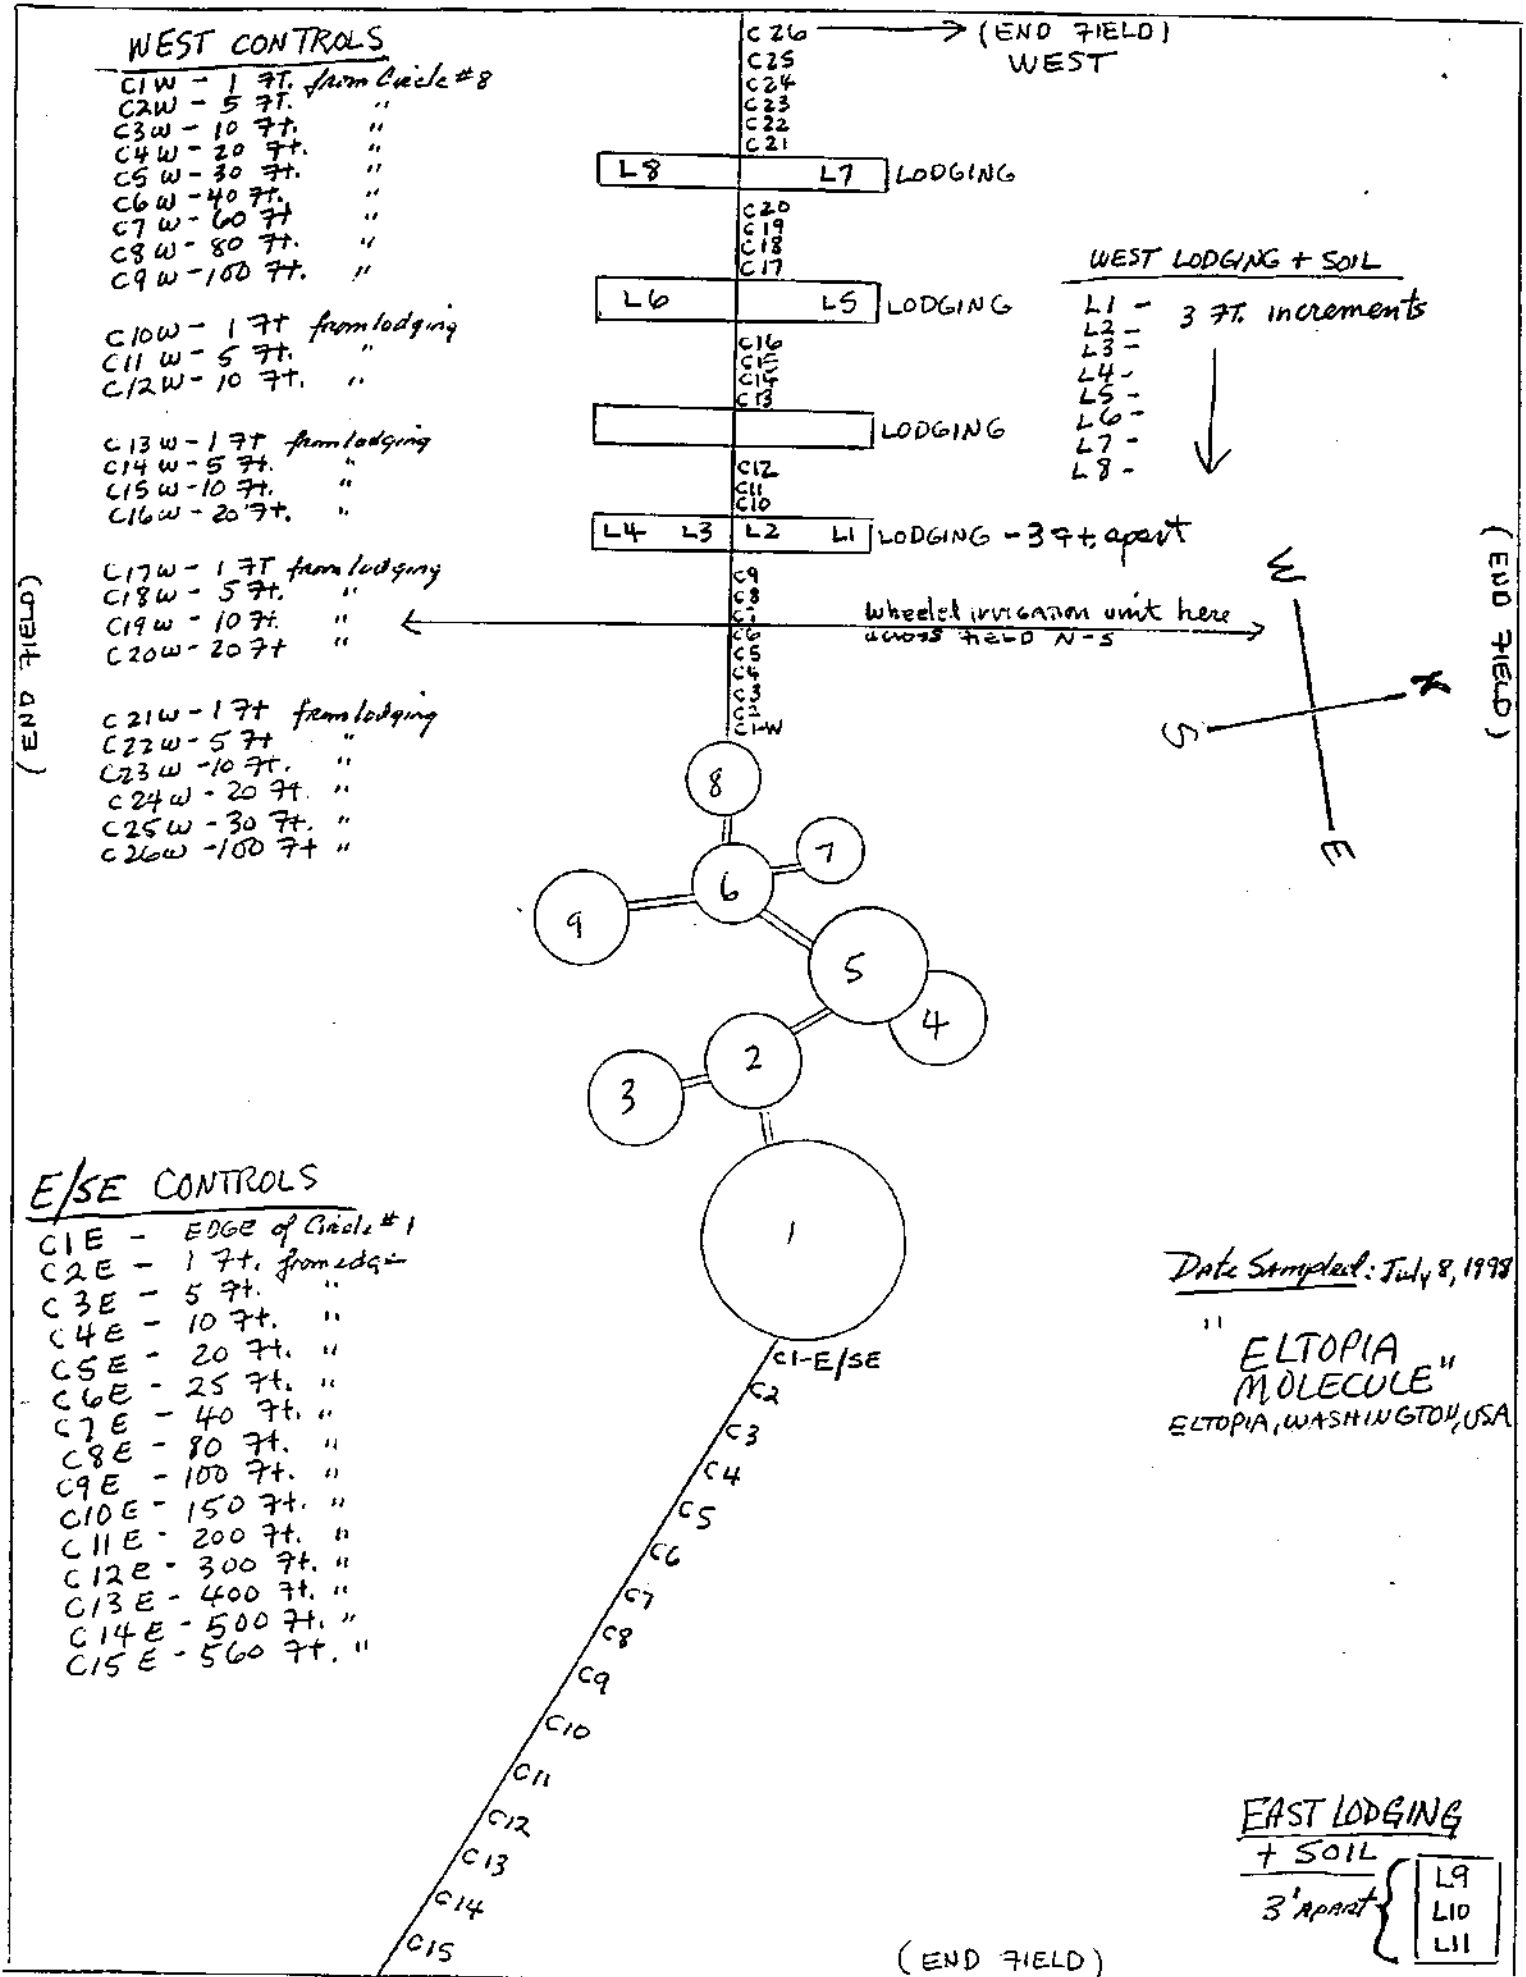 WEST CONTROLS
C1W - 1 FT. from Circle #8
C2W - 5 FT. "
C3W - 10 Ft. "
C4W - 20 Ft. "
C5W - 30 Ft. "
C6W - 40 Ft. "
C7W - 60 Ft "
C8W - 80 Ft. "
C9W - 100 Ft. "
C10W - 1 Ft from lodging
C11W - 5 Ft. "
C12W - 10 Ft. "
C13W - 1 Ft from lodging
C14W - 5 Ft. "
C15W - 10 Ft. "
C16W - 20 Ft. "
C17W - 1 FT from lodging
C18W - 5 Ft. "
C19W - 10 Ft. "
C20W - 20 Ft "
C21W - 1 Ft from lodging
C22W - 5 Ft "
C23W - 10 Ft. "
C24W - 20 Ft. "
C25W - 30 Ft. "
C26W - 100 Ft "
C26 (END FIELD)
WEST
C25
C24
C23
C22
C21
L8 L7 LODGING
C20
C19
C18
C17
L6 L5 LODGING
C16
C15
C14
C13
LODGING
C12
C11
C10
L4 L3 L2 L1 LODGING - 3 Ft. apart
C9
C8
C7
C6
C5
C4
C3
C2
C1-W
Wheeled irrigation unit here
across FIELD N-S
WEST LODGING + SOIL
L1 - 3 FT. increments
L2 -
L3 -
L4 -
L5 -
L6 -
L7 -
L8 -
(END FIELD)
(END FIELD)
W
N
S
E
8
7
6
9
5
4
2
3
1
E/SE CONTROLS
C1E - EDGE of Circle #1
C2E - 1 Ft. from edge
C3E - 5 Ft. "
C4E - 10 Ft. "
C5E - 20 Ft. "
C6E - 25 Ft. "
C7E - 40 Ft. "
C8E - 80 Ft. "
C9E - 100 Ft. "
C10E - 150 Ft. "
C11E - 200 Ft. "
C12E - 300 Ft. "
C13E - 400 Ft. "
C14E - 500 Ft. "
C15E - 560 Ft. "
C1-E/SE
C2
C3
C4
C5
C6
C7
C8
C9
C10
C11
C12
C13
C14
C15
Date Sampled: July 8, 1998
"ELTOPIA
MOLECULE"
ELTOPIA, WASHINGTON, USA
EAST LODGING
+ SOIL
3' APART
L9
L10
L11
(END FIELD)